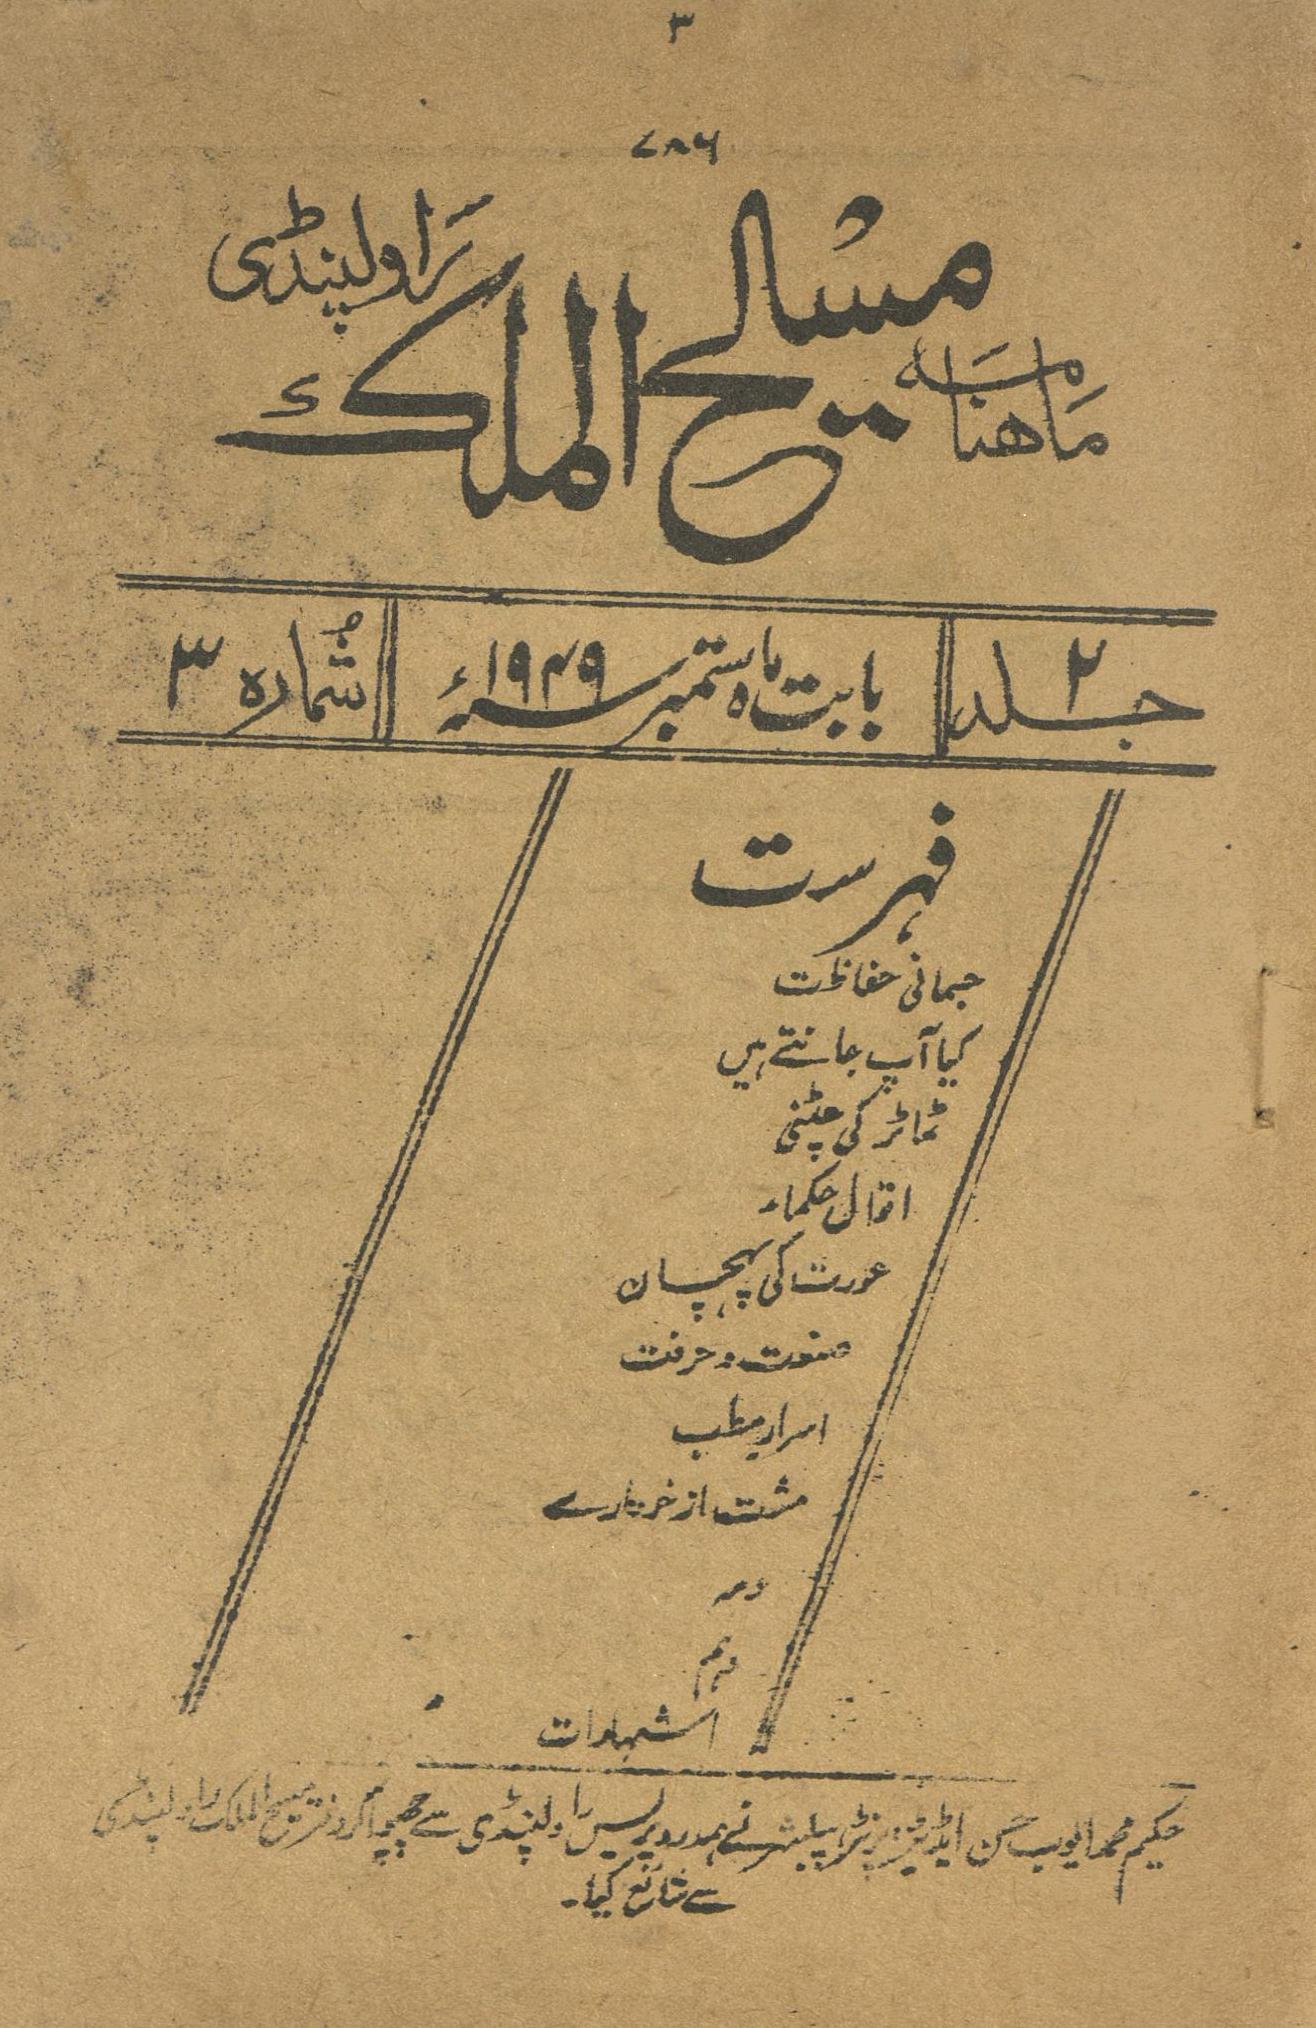 ۳
۷۸۶
ماہنامہ مسیح الملک راولپنڈی
جلد ۲
بابت ماہ ستمبر سنہ ۱۹۴۹ء
شمارہ ۳
فہرست
جسمانی حفاظت
کیا آپ جانتے ہیں
ٹماٹر کی چٹنی
اقوال حکماء
عورت کی پہچان
صنعت و حرفت
اسرار مطب
مشت از خروارے
دمہ
مرہم
اشتہارات
حکیم محمد ایوب حسن ایڈیٹر پرنٹر پبلشر نے ہمدرد پریس راولپنڈی سے چھپوا کر دفتر مسیح الملک راولپنڈی
سے شائع کیا۔